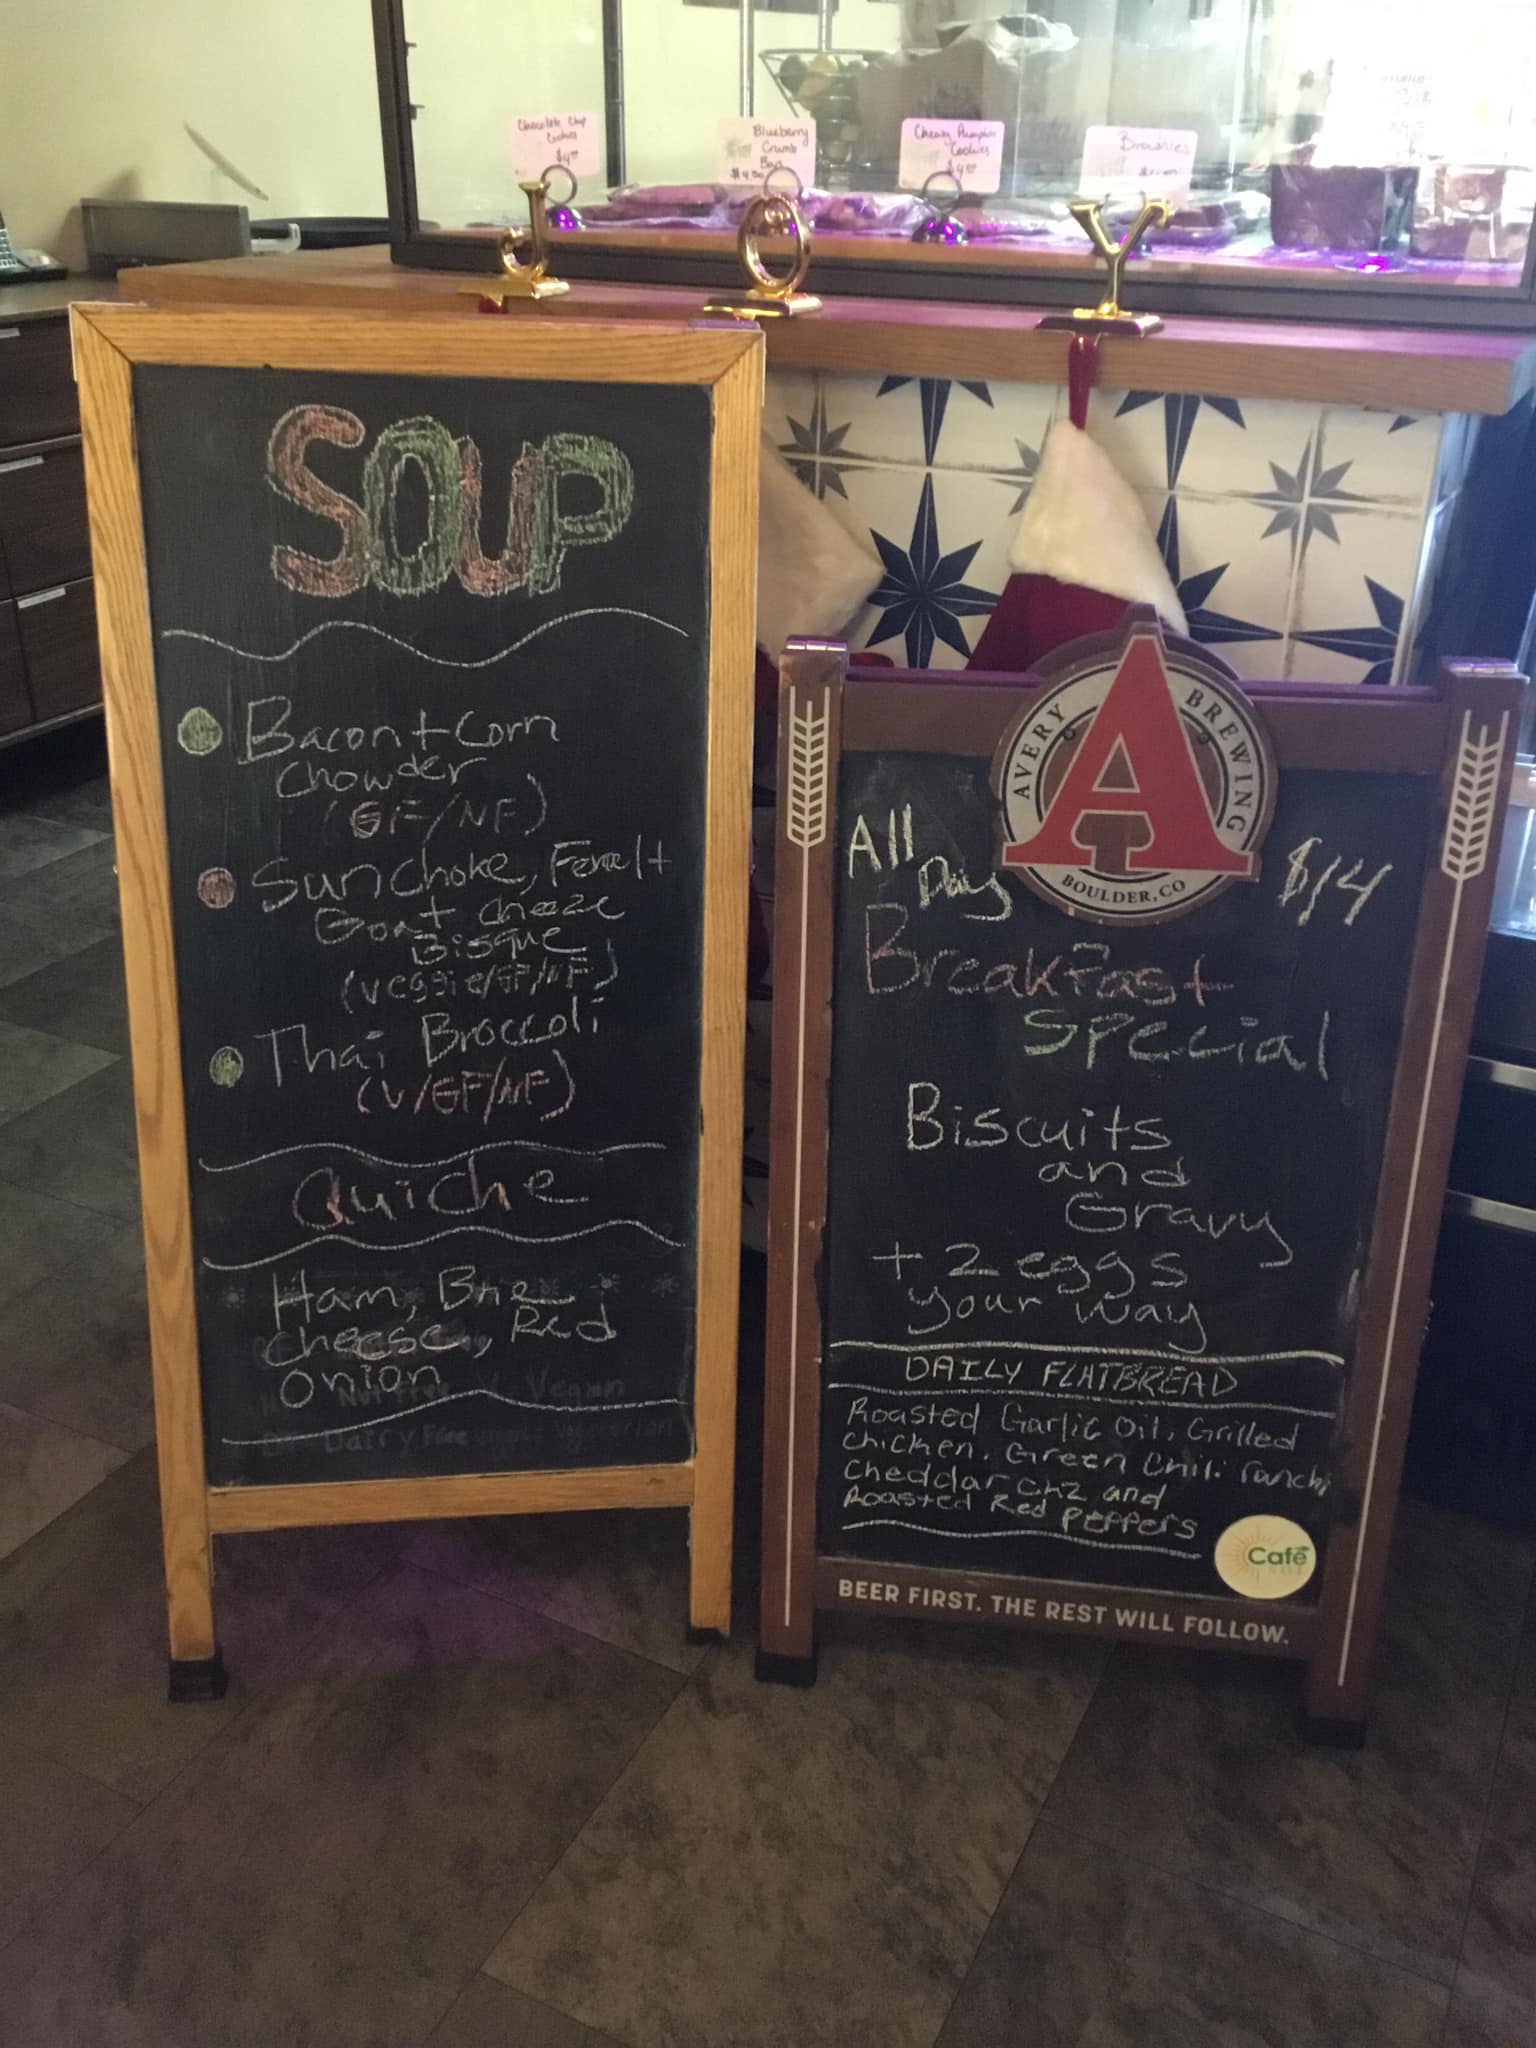 Chocolate Chip
Cookies
$4.00
Blueberry
Crumb
Bars
$4.50
Chewy Pumpkin
Cookies
$4.00
Brownies
JOY
SOUP
Bacon + Corn
Chowder
(GF/NF)
Sunchoke, Fennel +
Goat Cheeze
Bisque
(veggie/GF/NF)
Thai Broccoli
(V/GF/NF)
Quiche
Ham, Brie
cheese, Red
Onion
Nut Free Vegan
Dairy Free Vegetarian
AVERY BREWING
A
BOULDER, CO
All
Day
$14
Breakfast
Special
Biscuits
and
Gravy
+ 2 eggs
your way
DAILY FLATBREAD
Roasted Garlic Oil, Grilled
Chicken, Green Chili ranch,
Cheddar chz and
Roasted Red Peppers
Café
BEER FIRST. THE REST WILL FOLLOW.